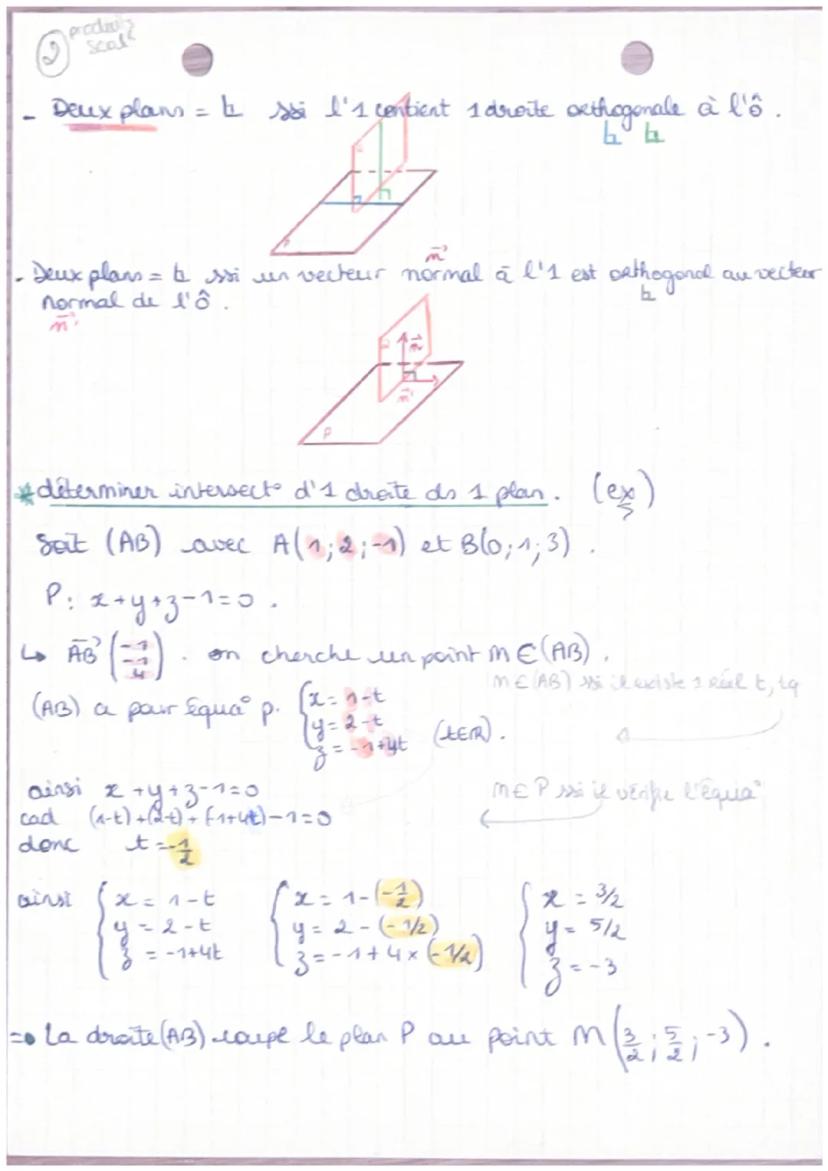 2 produits scal
- Deux plans = ⊥ ssi l'1 contient 1 droite orthogonale à l'ô.
⊥ ⊥
P
n⃗
- Deux plans = ⊥ ssi un vecteur normal à l'1 est orthogonal au vecteur
⊥
normal de l'ô.
n⃗'
n⃗
n⃗'
P
* déterminer intersect° d'1 droite ds 1 plan. (ex)
Soit (AB) avec A(1;2;-1) et B(0;1;3).
P: x+y+z-1=0.
↳ AB⃗ (-1 -1 4). on cherche un point M∈(AB).
M∈(AB) ssi il existe 1 réel t, tq
(AB) a pour équa° p. { x = 1-t
y = 2-t (t∈R).
z = -1+4t
ainsi x+y+z-1=0
M∈P ssi il vérifie l'équa°
cad (1-t)+(2-t)+(-1+4t)-1=0
donc t = -1/2
ainsi { x = 1-t { x = 1-(-1/2) { x = 3/2
y = 2-t y = 2-(-1/2) y = 5/2
z = -1+4t z = -1+4×(-1/2) z = -3
=> La droite (AB) coupe le plan P au point M(3/2; 5/2; -3).